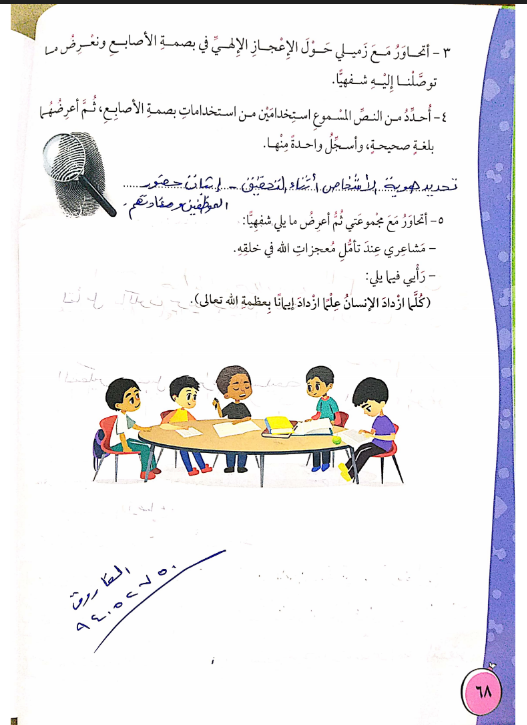 ٣- أتحاوَرُ مَعَ زَميلي حَوْلَ الإعْجازِ الإلهيِّ في بصمةِ الأصابعِ ونعْرِضُ ما
توصَّلْنا إليْهِ شفهيًّا.
٤- أُحدِّدُ من النصِّ المَسْموعِ استِخدامَيْن من استخداماتِ بصمةِ الأصابِعِ، ثُمَّ أعرِضُهُما
بلغةٍ صحيحةٍ، وأسجِّلُ واحدةً مِنْها.
تحديد هوية الأشخاص أثناء التحقيق - إثبات حضور
الموظفين ومغادرتهم.
٥- أتحاوَرُ مَعَ مَجْموعَتي ثُمَّ أعرِضُ ما يلي شفهيًّا:
- مَشاعِري عِنْدَ تأمُّلِ مُعجزاتِ الله في خلقِهِ.
- رَأْيي فيما يلي:
(كُلَّما ازْدادَ الإنسانُ عِلْمًا ازْدادَ إيمانًا بِعظمةِ الله تعالى).
الفاروق
٦٨